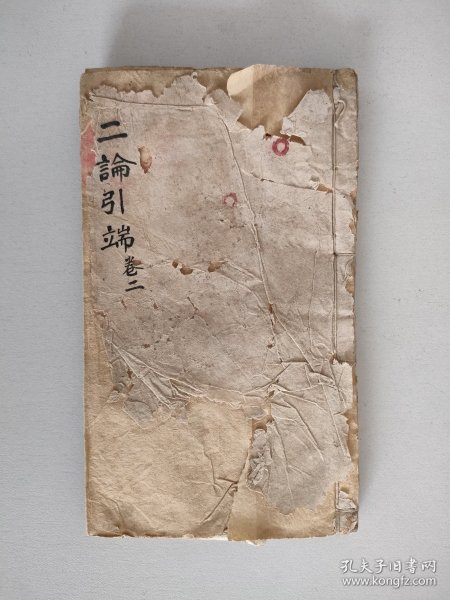 二論引端卷二
孔夫子旧书网
www.kongfz.com